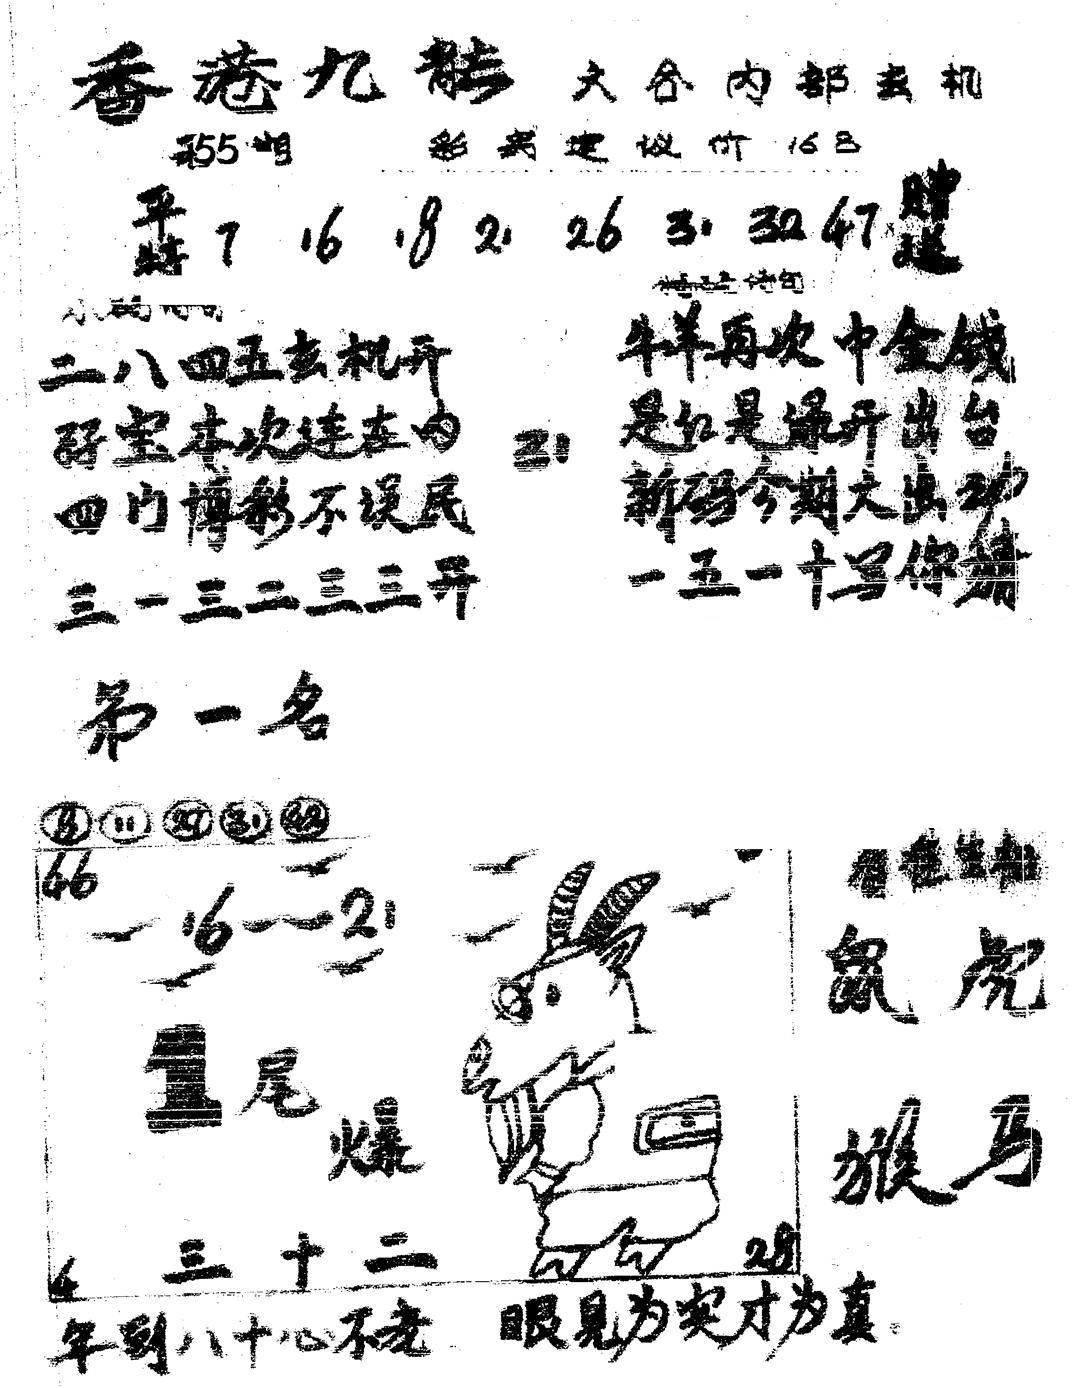 香港九龍 大谷内部玄机
第55期 彩票建议价 16日
平特 7 16 18 21 26 31 32 47 赠送
二八四五玄机开
牛羊再次中金钱
宝本次连在内
31
是红是绿开出台
四门博彩不误民
新码今期大出
三一三二三三开
一五一十写你猜
第一名
11 31
46
16 21
鼠 虎
1尾
爆
猴 马
三十二
4 28
年到八十心不老 眼見为实才为真